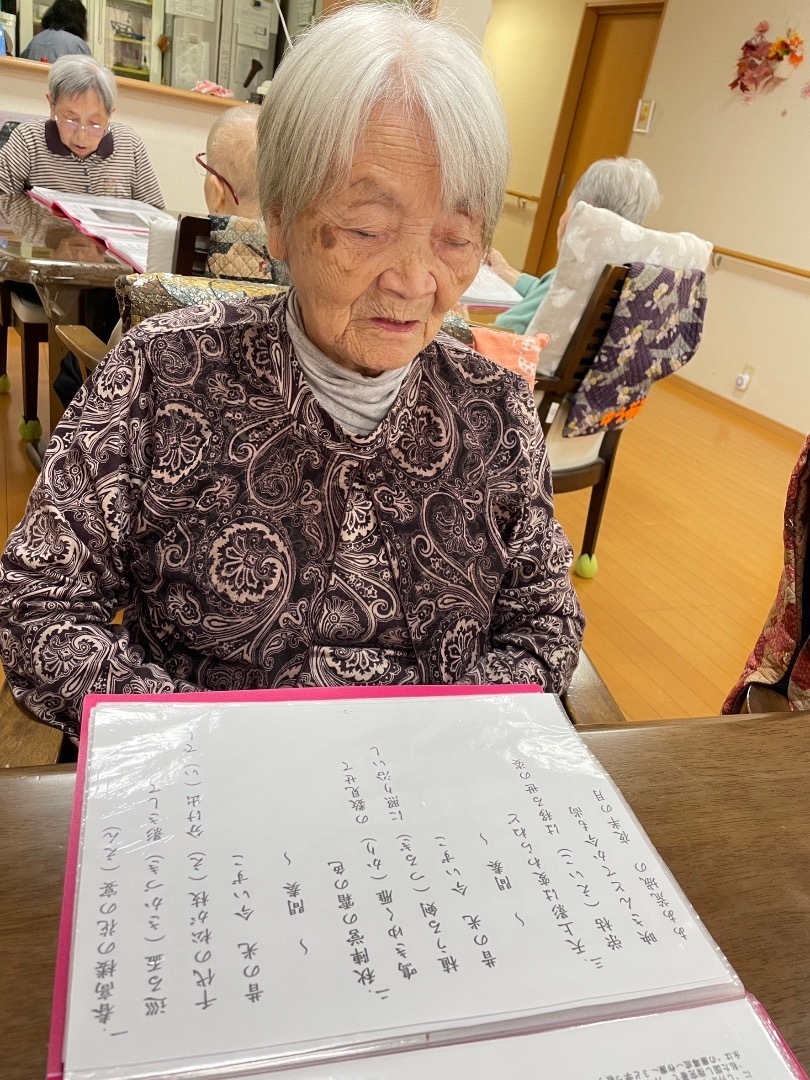 一.春高楼の花の宴（えん）
巡る盃（さかづき） 影さして
千代の松が枝（え） 分け出（い）でし
昔の光 今いずこ
～ 間奏 ～
二.秋陣営の霜の色
鳴きゆく雁（かり） の数見せて
植うる剣（つるぎ） に照り沿いし
昔の光 今いずこ
～ 間奏 ～
三.天上影は変わらねど
栄枯（えいこ） は移る世の姿
映さんとてか今も尚
ああ荒城の 夜半の月